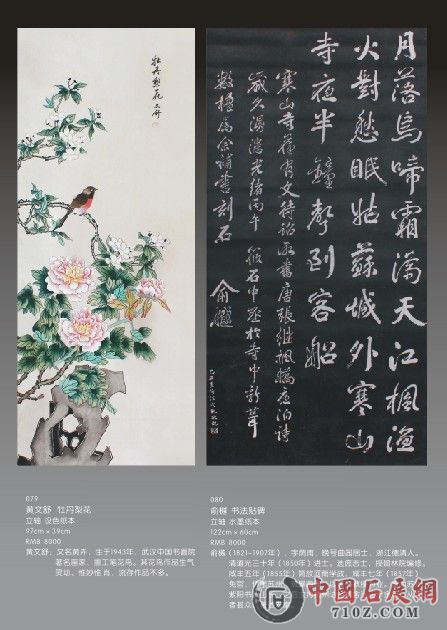 牡丹梨花 文舒
月落烏啼霜滿天江楓漁
火對愁眠姑蘇城外寒山
寺夜半鐘聲到客船
寒山寺舊有文待詔所書唐張繼楓橋夜泊詩
歲久漫漶光緒丙午筱石中丞於寺中新葺
數楹屬余補書刻石
俞樾
079
黄文舒 牡丹梨花
立轴 设色纸本
97cm×39cm
RMB 8000
黄文舒，又名黄卉，生于1943年，武汉中国书画院
著名画家，画工笔花鸟。其花鸟作品生气
灵动、惟妙惟肖，流存作品不多。
080
俞樾 书法贴碑
立轴 水墨纸本
122cm×60cm
RMB 8000
俞樾(1821-1907年)，字荫甫，晚号曲园居士，浙江德清人。
清道光三十年（1850年）进士。选庶吉士，授翰林院编修。
咸丰五年（1855年）简放河南学政，咸丰七年（1857年）
免官。
紫阳书
者甚众
中國石展網
710Z.COM